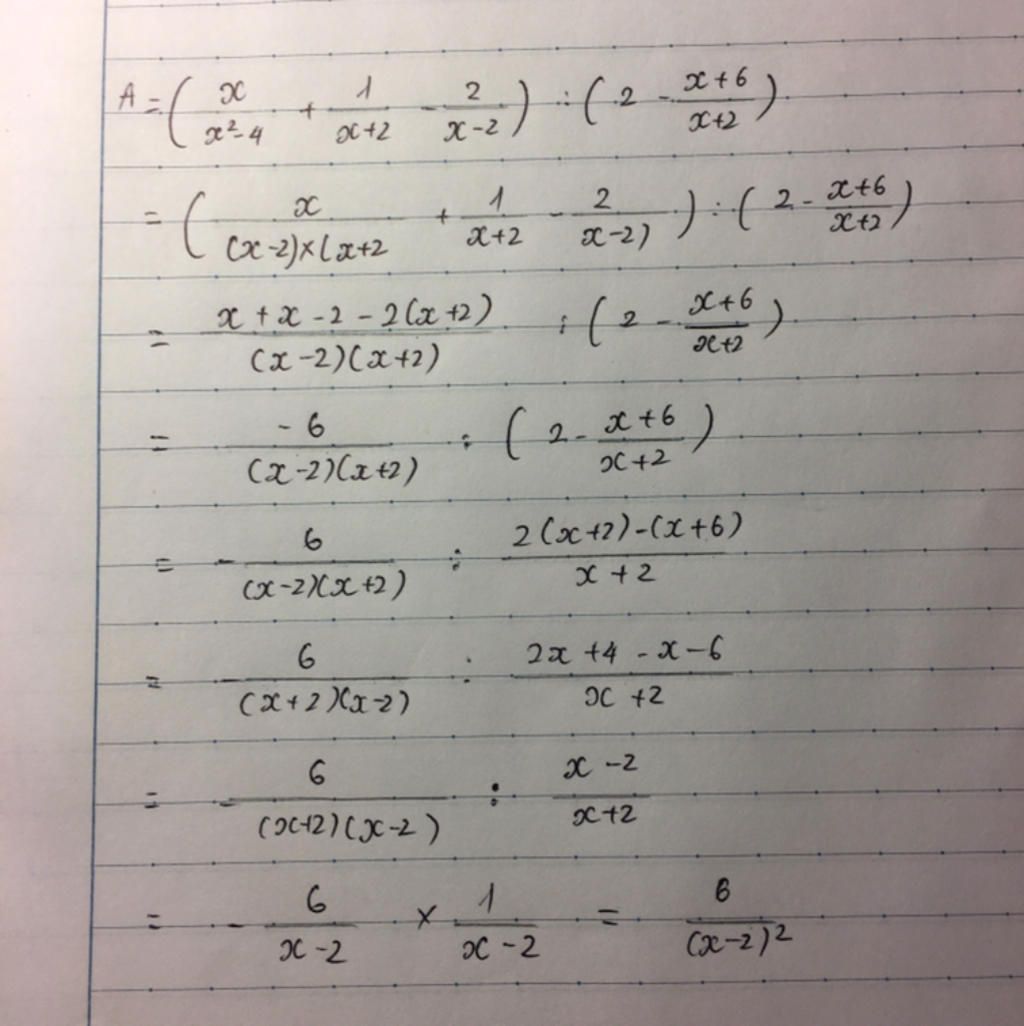 A = ( x/(x²-4) + 1/(x+2) - 2/(x-2) ) ÷ ( 2 - (x+6)/(x+2) )
= ( x/((x-2)×(x+2) + 1/(x+2) - 2/(x-2)) ) ÷ ( 2 - (x+6)/(x+2) )
= (x + x - 2 - 2(x+2))/((x-2)(x+2)) : ( 2 - (x+6)/(x+2) )
= -6/((x-2)(x+2)) : ( 2 - (x+6)/(x+2) )
= - 6/((x-2)(x+2)) : (2(x+2)-(x+6))/(x+2)
= - 6/((x+2)(x-2)) : (2x+4-x-6)/(x+2)
= - 6/((x+2)(x-2)) : (x-2)/(x+2)
= - 6/(x-2) × 1/(x-2) = 6/(x-2)²